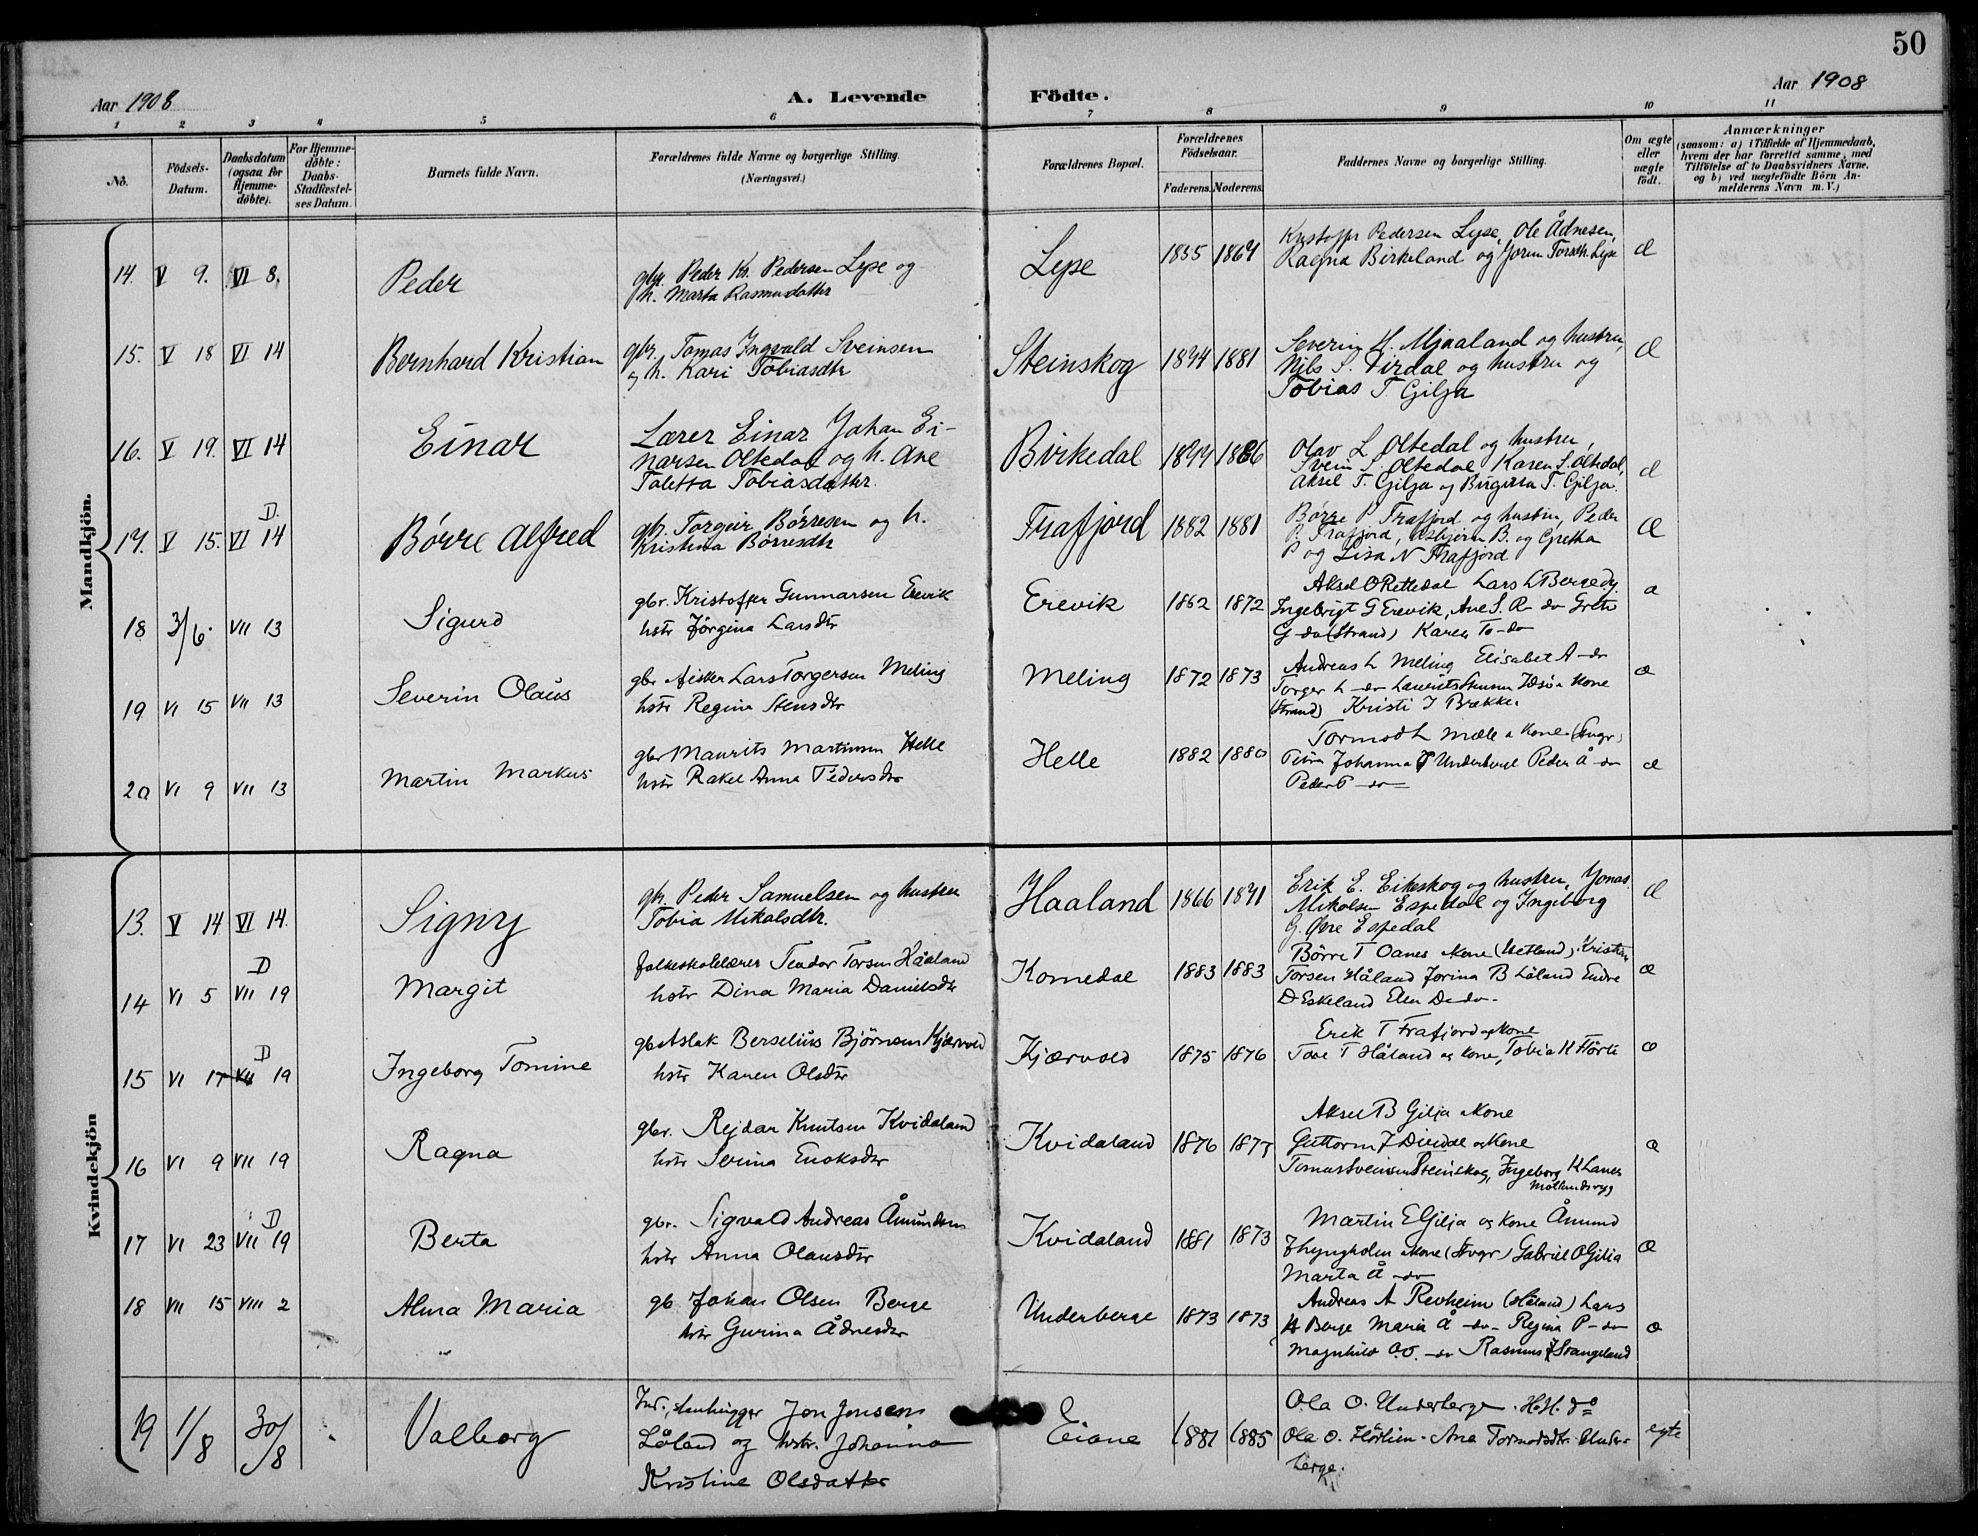 50
Aar 1908
A. Levende Födte.
Aar 1908
1 2 3 4 5 6 7 8 9 10 11
No.
Födsels-Datum.
Daabsdatum (ogsaa for Hjemme-döbte).
For Hjemme-döbte: Daabs-Stadfæstel-ses Datum.
Barnets fulde Navn.
Forældrenes fulde Navne og borgerlige Stilling.
(Næringsvei.)
Forældrenes Bopæl.
Forældrenes Födselsaar.
Faderens. Moderens.
Faddernes Navne og borgerlige Stilling.
Om ægte eller uægte födt.
Anmærkninger
(saasom: a) i Tilfælde af Hjemmedaab,
hvem der har forrettet samme, med
Tilföielse af to Daabsvidners Navne.
og b) ved uægtefödte Börn An-
melderens Navn m. V.)
Mandkjön.
14. V 9. VI 8. Peder
gbr. Peder Kr. Pedersen Lyse og
h. Marta Rasmusdatter
Lyse 1855 1864
Kristoffer Pedersen Lyse, Ole Ådnesen,
Ragna Birkeland og Joren Lyse
Æ
15. V 18 VI 14 Bernhard Kristian
gbr. Tomas Ingvald Sveinsen
og h. Kari Tobiasdtr
Steinskog 1874 1881
Severin H. Mjaaland og hustru,
Nils S. Dirdal og hustru og
Tobias T. Gilja
Æ
16. V 19. VI 14 Einar
Lærer Einar Johan Ei-
narsen Oltedal og h. Ane
Taletta Tobiasdatter.
Birkedal 1877 1886
Olav L Oltedal og hustru,
Svein S. Oltedal, Karen S. Oltedal,
Aksel T. Gilja og Birgitta T. Gilja.
Æ
17. V 15. D. VI 14 Børre Alfred
gbr. Torgeir Børresen og h.
Kristina Børresdtr
Frafjord 1882 1881
Børre P. Frafjord og hustru, Peder
P. Frafjord, Asbjørn B. og Gretha
P og Lisa N Frafjord
Æ
18 3/6. VII 13 Sigurd
gbr. Kristoffer Gunnarsen Erevik
hstr Jørgina Larsdtr
Erevik 1862 1872
Aksel O Rettedal Lars L Berge dy.
Ingebrigt G Erevik, Ane S. R- do Grete
G-do (Strand) Karen To-do
æ
19 VI 15 VII 13 Severin Olaus
gbr Fisker Lars Torgersen Meling
hstr Regine Stensdtr
Meling 1872 1873
Andreas L Meling Elisabet A-do
Torger L-do Laurits Idsø a Kone
(Strand) Kristi J Brække.
æ
20 VI 9 VII 13 Martin Markus
gbr Maurits Martinsen Helle
hstr Rakel Anna Pedersdtr
Helle 1882 1880
Tormod L Mæle a Kone (Stvgr)
Petra Johanna Underberge Peder Å-do
Peder P-do
æ
Kvindekjön
13. V 14 VI 14. Signy
gbr. Peder Samuelsen og hustru
Tobia Mikalsdtr.
Haaland 1866 1871
Erik E. Eikeskog og hustru, Jonas
Mikalsen Espedal og Ingeborg
G. Øvre Espedal
Æ
14 VI 5 D VII 19 Margit
folkeskolelærer Teodor Torsen Håaland
hstr Dina Maria Danielsdtr
Komedal 1883 1883
Børre T Oanes a Kone (Hetland) Kristian
Torsen Håland Jorina B Løland Endre
D Eskeland Elen D-do-
æ
15 VI 17 D VII 19 Ingeborg Tomine
gbr Aslak Berselius Bjørnsen Kjærvold
hstr Karen Olsdtr
Kjærvold 1875 1876
Erik T Frafjord og Kone
Tore T Håland og Kone, Tobia H Hørte
æ
16 VI 9 VII 19 Ragna
gbr. Rejdar Knutsen Kvidaland
hstr Serina Enoksdtr
Kvidaland 1876 1877
Aksel B Gilja a Kone
Guttorm J Dirdal og Kone
Tomas Sveinsen Steinskog, Ingeborg K Lanes
æ
17 VI 23 D VII 19 Berta
gbr. Sigvald Andreas Åmundsen
hstr Anna Olausdtr
Kvidaland 1881 1873
Martin E Gilja og Kone Åmund
Lyngholm a Kone (Stvgr) Gabriel O Gilja
Marta Å-do
æ
18 VII 15 VIII 2 Alma Maria
gb Johan Olsen Berge
hstr Gurina Ådnesdtr
Underberge 1873 1873
Andreas A Revheim (Håland) Lars
H Berge Maria Å-do- Regina P-do
Magnhild O.O.-do Rasmus J Svangeland
æ
19 1/8 30/8 Valborg
Ind., stenhugger Jon Jonsen
Låland og hstr. Johanna
Kristine Olsdatter
Eiane 1881 1885
Ola O. Underberge. H.H. do
Ola O. Hörlien. Ana Tormodsdtr Under-
berge.
egte